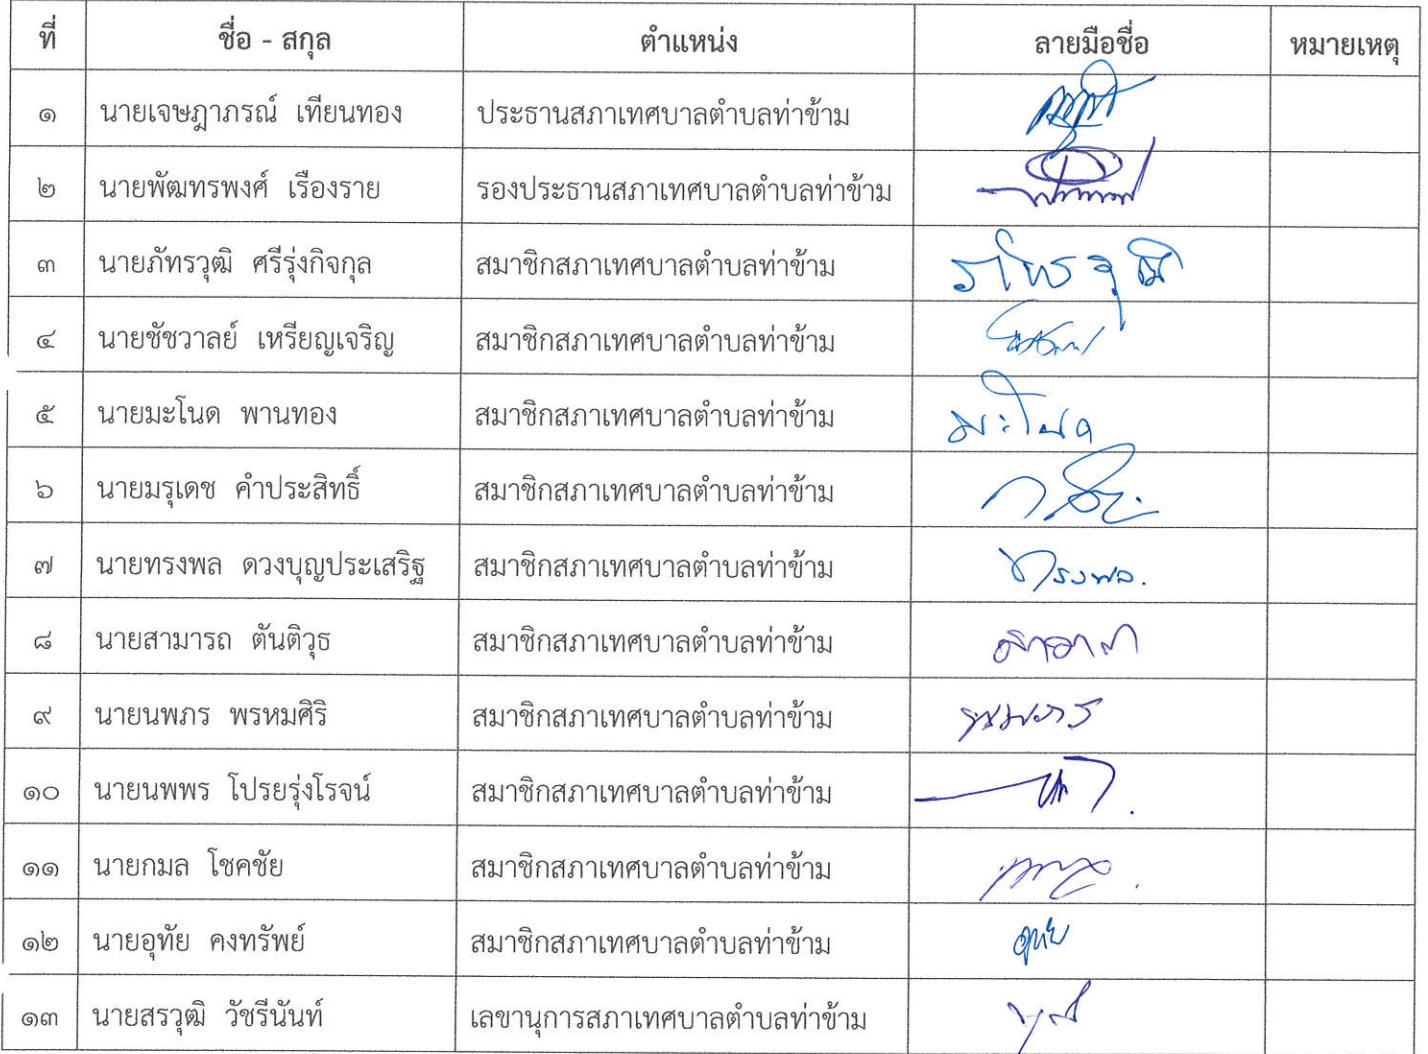 ที่ ชื่อ - สกุล ตำแหน่ง ลายมือชื่อ หมายเหตุ
๑ นายเจษฎาภรณ์ เทียนทอง ประธานสภาเทศบาลตำบลท่าข้าม
๒ นายพัฒทรพงศ์ เรืองราย รองประธานสภาเทศบาลตำบลท่าข้าม
๓ นายภัทรวุฒิ ศรีรุ่งกิจกุล สมาชิกสภาเทศบาลตำบลท่าข้าม ภัทรวุฒิ
๔ นายชัชวาลย์ เหรียญเจริญ สมาชิกสภาเทศบาลตำบลท่าข้าม
๕ นายมะโนด พานทอง สมาชิกสภาเทศบาลตำบลท่าข้าม มะโนด
๖ นายมรุเดช คำประสิทธิ์ สมาชิกสภาเทศบาลตำบลท่าข้าม
๗ นายทรงพล ดวงบุญประเสริฐ สมาชิกสภาเทศบาลตำบลท่าข้าม ทรงพล.
๘ นายสามารถ ตันติวุธ สมาชิกสภาเทศบาลตำบลท่าข้าม
๙ นายนพภร พรหมศิริ สมาชิกสภาเทศบาลตำบลท่าข้าม
๑๐ นายนพพร โปรยรุ่งโรจน์ สมาชิกสภาเทศบาลตำบลท่าข้าม
๑๑ นายกมล โชคชัย สมาชิกสภาเทศบาลตำบลท่าข้าม
๑๒ นายอุทัย คงทรัพย์ สมาชิกสภาเทศบาลตำบลท่าข้าม อุทัย
๑๓ นายสรวุฒิ วัชรีนันท์ เลขานุการสภาเทศบาลตำบลท่าข้าม